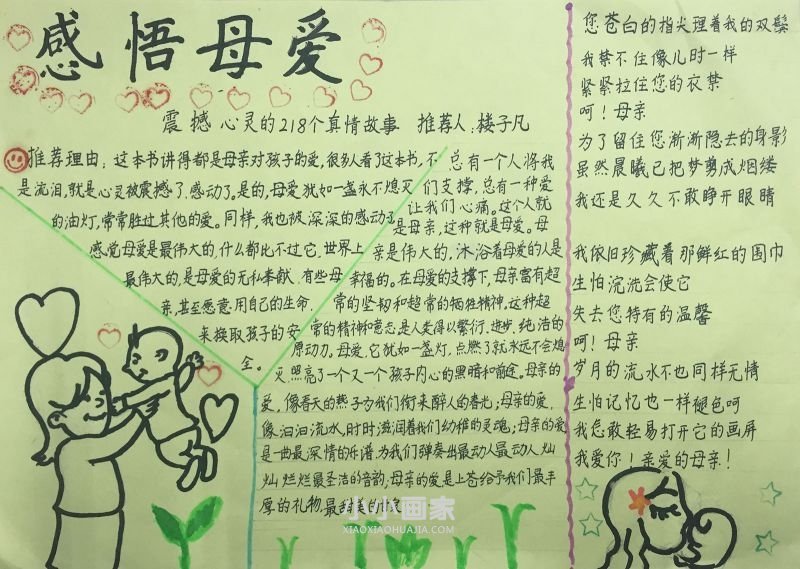 感悟母爱
震撼心灵的218个真情故事 推荐人:楼子凡
推荐理由:这本书讲得都是母亲对孩子的爱,很多人看了这本书,不
是流泪,就是心灵被震撼了,感动了。是的,母爱犹如一盏永不熄灭
的油灯,常常胜过其他的爱。同样,我也被深深的感动了
感觉母爱是最伟大的,什么都比不过它,世界上
最伟大的,是母爱的无私奉献,有些母
亲,甚至愿意用自己的生命,
来换取孩子的安
全。
总有一个人将我
们支撑,总有一种爱
让我们心痛。这个人就
是母亲,这种就是母爱。母
亲是伟大的,沐浴着母爱的人是
幸福的。在母爱的支撑下,母亲富有超
常的坚韧和超常的牺牲精神。这种超
常的精神和意志是人类得以繁衍、进步,纯洁的
原动力。母爱,它犹如一盏灯,点燃了就永远不会熄
灭,照亮了一个又一个孩子内心的黑暗和前途。母亲的
爱,像春天的燕子为我们衔来醉人的春光;母亲的爱,
像汩汩流水,时时滋润着我们幼稚的灵魂;母亲的爱
是一曲最深情的乐谱,为我们弹奏出最动人最动人,灿
灿烂烂最圣洁的音韵;母亲的爱是上苍给予我们最丰
厚的礼物,最
您苍白的指尖理着我的双鬓
我禁不住像儿时一样
紧紧拉住您的衣襟
呵!母亲
为了留住您渐渐隐去的身影
虽然晨曦已把梦剪成烟缕
我还是久久不敢睁开眼睛
我依旧珍藏着那鲜红的围巾
生怕浣洗会使它
失去您特有的温馨
呵!母亲
岁月的流水不也同样无情
生怕记忆也一样褪色呵
我怎敢轻易打开它的画屏
我爱你!亲爱的母亲!
小小画家
XIAOXIAOHUAJIA.COM